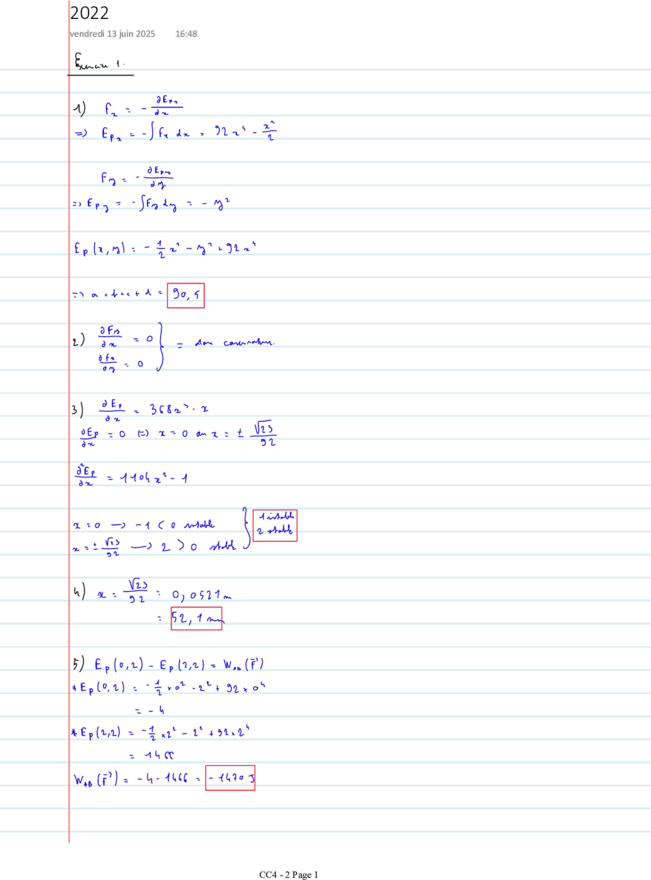 2022
vendredi 13 juin 2025 16:48
Exercice 1.
1) Fx = - ∂Epx/∂x
=> Epx = -∫Fx dx = 92x⁴ - x²/2
Fy = - ∂Epy/∂y
=> Epy = -∫Fy dy = - y²
Ep(x,y) = - 1/2 x² - y² + 92x⁴
=> a + b + c + d = 90,5
2) ∂Fy/∂x = 0
∂Fx/∂y = 0 } = donc conservative.
3) ∂Ep/∂x = 368x³ - x
∂Ep/∂x = 0 (=) x = 0 ou x = ± √23/92
∂²Ep/∂x = 1104x² - 1
x = 0 → -1 < 0 instable
x = ± √23/92 → 2 > 0 stable } 1 instable
2 stable
4) x = √23/92 = 0,0521m
= 52,1 mm
5) Ep(0,2) - Ep(2,2) = WAB(F)
* Ep(0,2) = - 1/2 × 0² - 2² + 92 × 0⁴
= - 4
* Ep(2,2) = - 1/2 × 2² - 2² + 92 × 2⁴
= 1466
WAB(F) = - 4 - 1466 = - 1470 J
CC4 - 2 Page 1